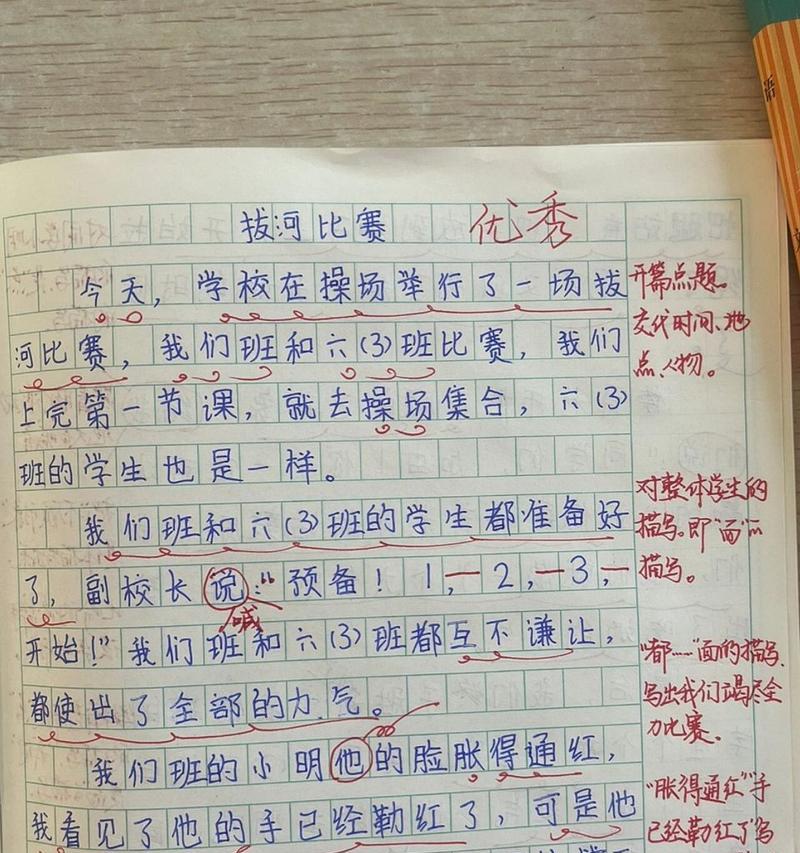 语
拔河比赛 优秀
今天，学校在操场举行了一场拔
河比赛，我们班和六(3)班比赛，我们
上完第一节课，就去操场集合，六(3)
班的学生也是一样。
我们班和六(3)班的学生都准备好
了，副校长说:“预备！1，—2，—3，—
喊
开始！”我们班和六(3)班都互不谦让，
都使出了全部的力气。
我们班的小明他的脸胀得通红，
我看见了他的手已经勒红了，可是他
开篇点题。
交代时间、地
点、人物。
对整体学生的
描写。即“面”的
描写。
“都……”面的描写，
写出我们竭尽全
力比赛。
“胀得通红”“手
已经勒红了”写